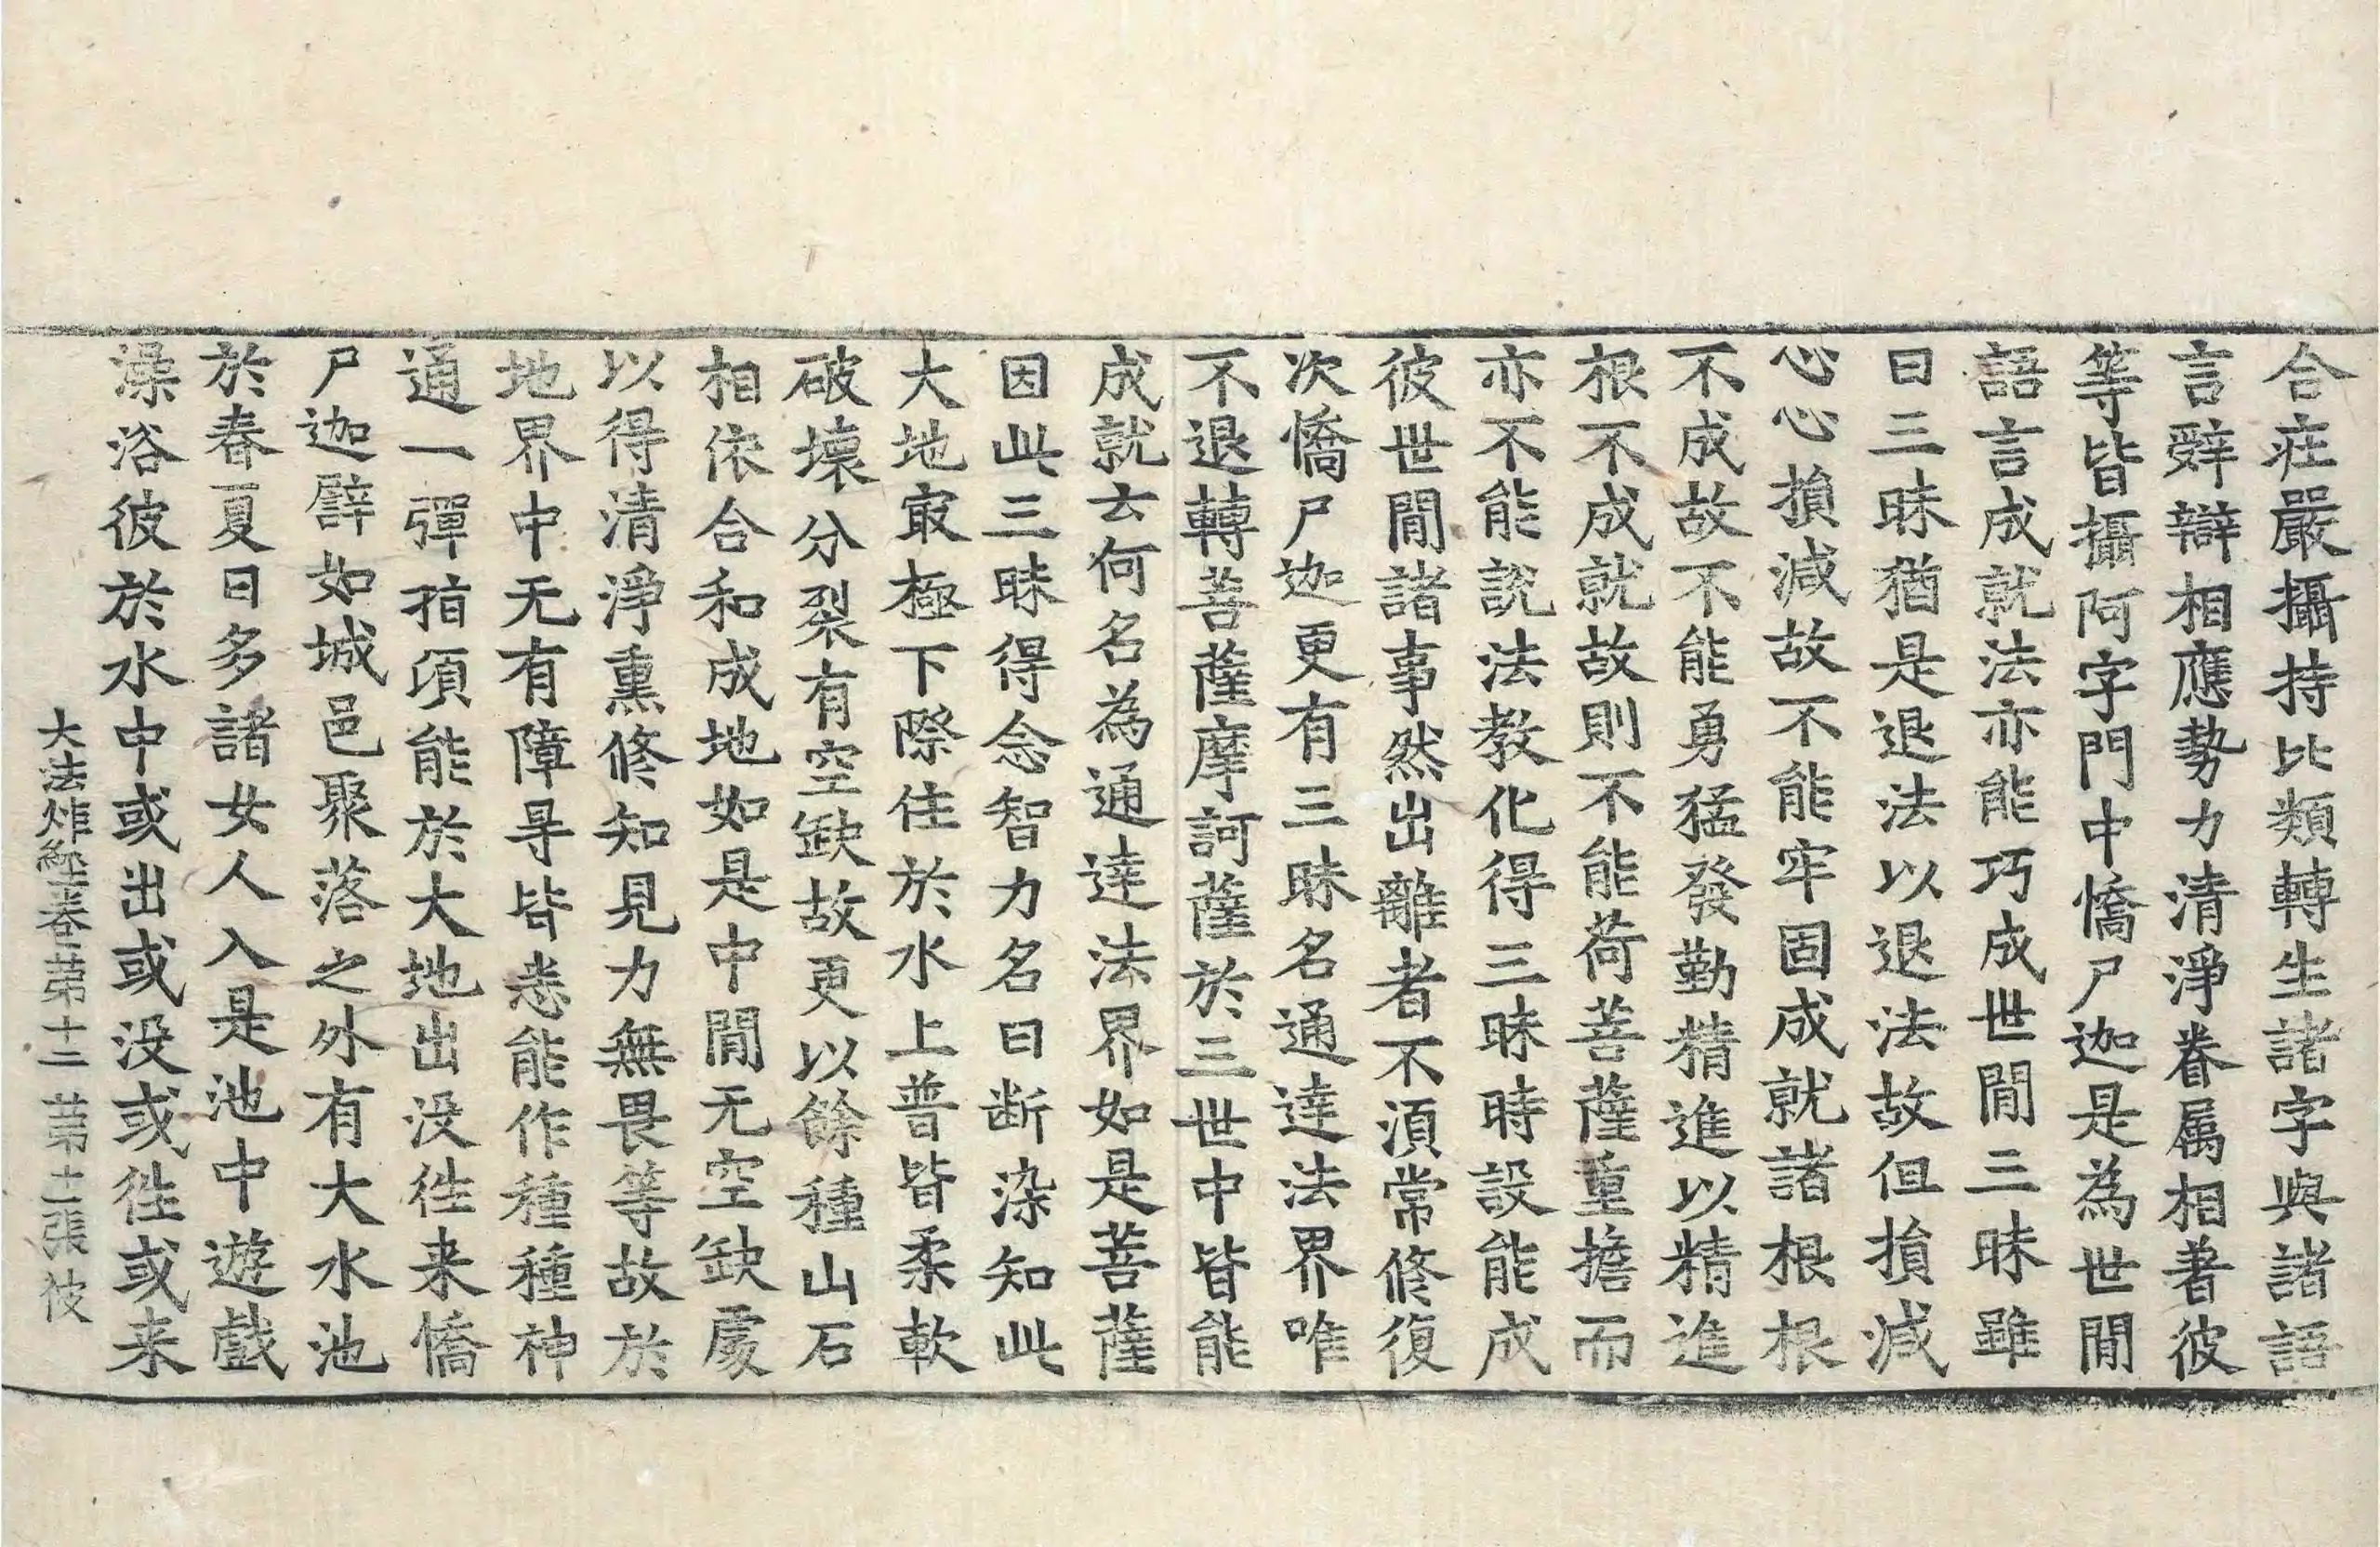 合莊嚴攝持比類轉生諸字與諸語
言辝辯相應勢力清淨眷属相著彼
等皆攝阿字門中憍尸迦是為世閒
語言成就法亦能巧成世閒三昧雖
曰三昧猶是退法以退法故但損減
心心損減故不能牢固成就諸根根
不成故不能勇猛發勤精進以精進
根不成就故則不能荷菩薩重擔而
亦不能說法教化得三昧時設能成
彼世閒諸事然出離者不湏常修復
次憍尸迦更有三昧名通達法界唯
不退轉菩薩摩訶薩於三世中皆能
成就云何名為通達法界如是菩薩
因此三昧得念智力名曰断染知此
大地㝡極下際住於水上普皆柔軟
破壞分裂有空缺故更以餘種山石
相依合和成地如是中閒无空缺處
以得清淨熏修知見力無畏等故於
地界中无有障㝵皆悉能作種種神
通一彈指頃能於大地出没往来憍
尸迦譬如城邑聚落之外有大水池
於春夏日多諸女人入是池中遊戲
澡浴彼於水中或出或没或往或来
大法炬經卷第十二 第十二張 彼